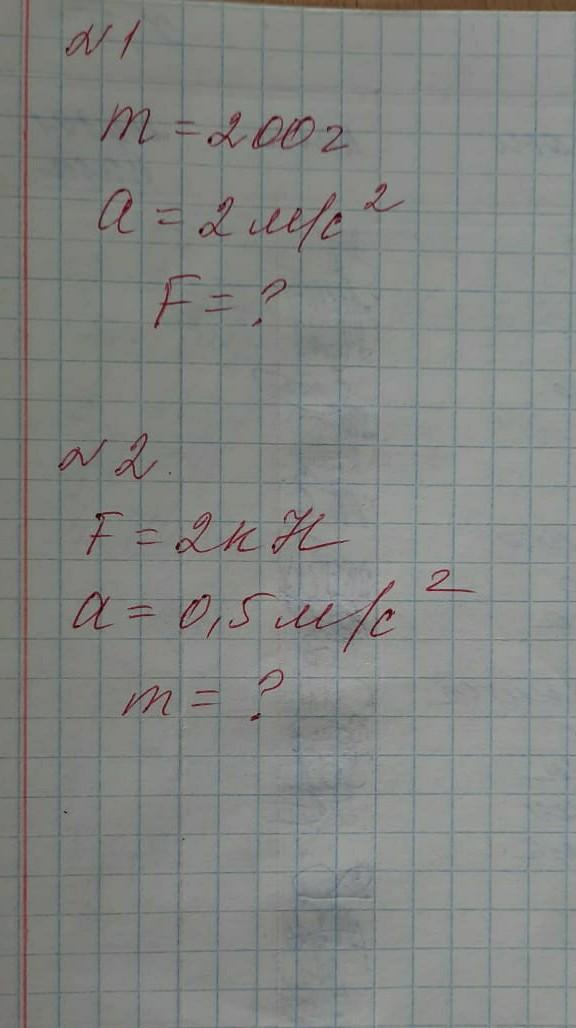 №1
m = 200г
a = 2 м/с²
F = ?
№2.
F = 2кН
a = 0,5 м/с²
m = ?